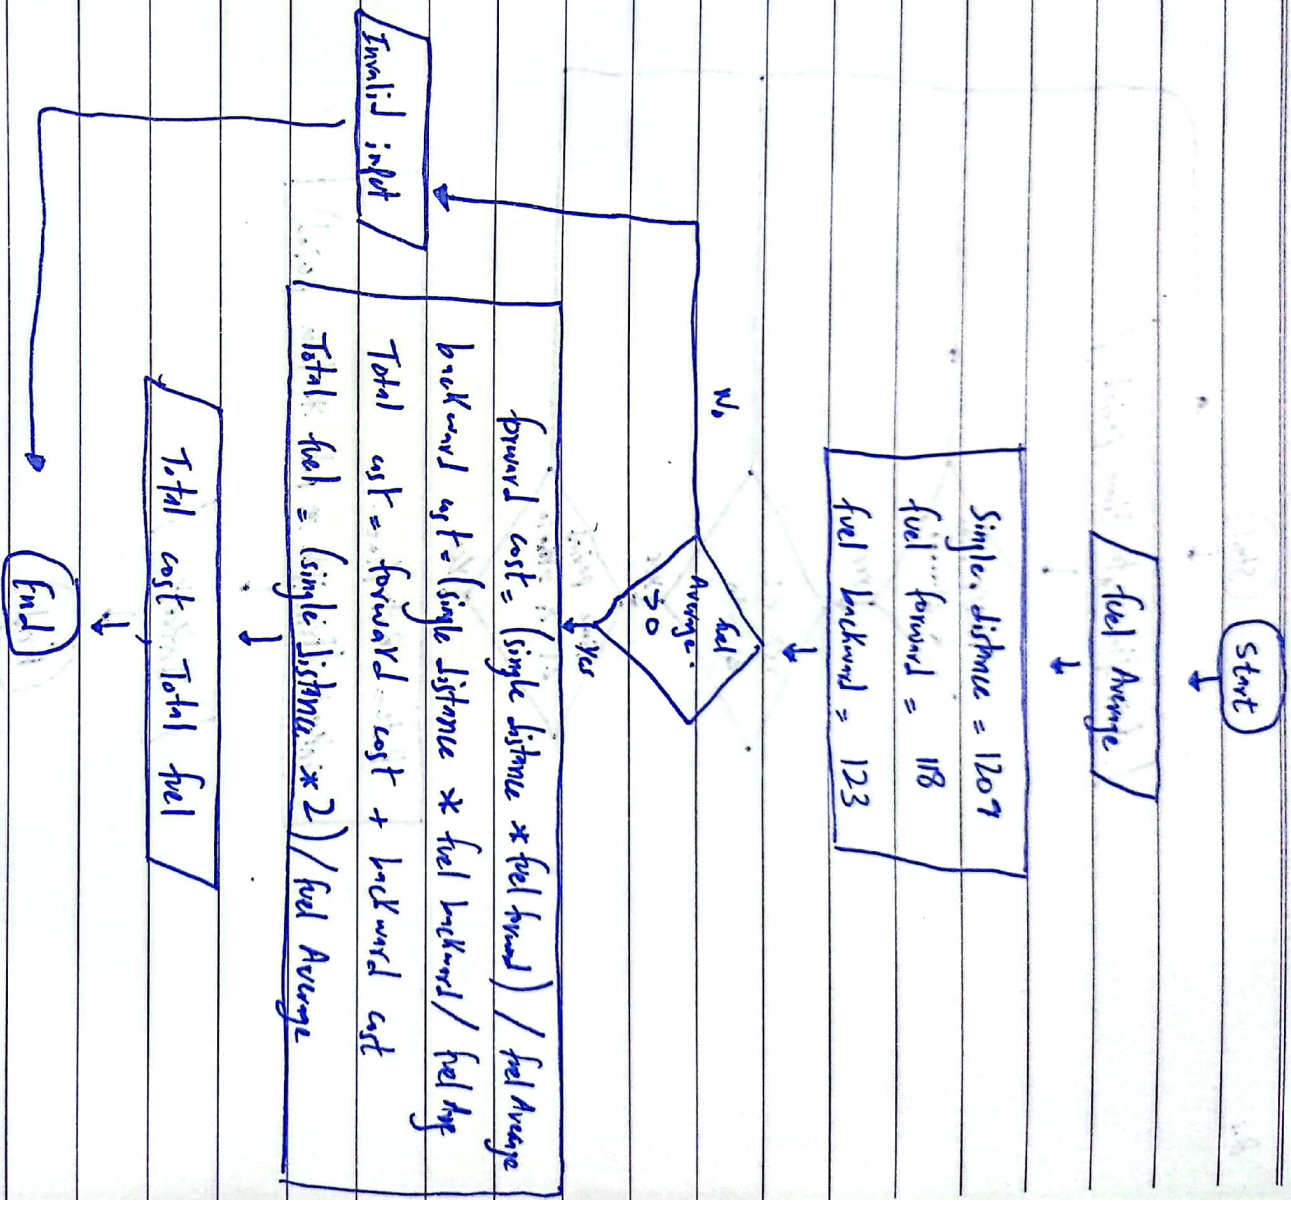 Start
fuel Average
Single distance = 1209
fuel forward = 118
fuel backward = 123
fuel
Average
>0
No
Yes
Invalid input
forward cost = (single distance * fuel forward) / fuel Average
backward cost = (single distance * fuel backward / fuel Avge
Total cost = forward cost + backward cost
Total fuel = (single distance * 2) / fuel Average
Total cost Total fuel
End